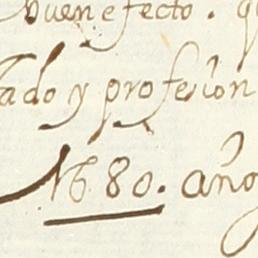 buen efecto. q
ado y profesion
1680. año